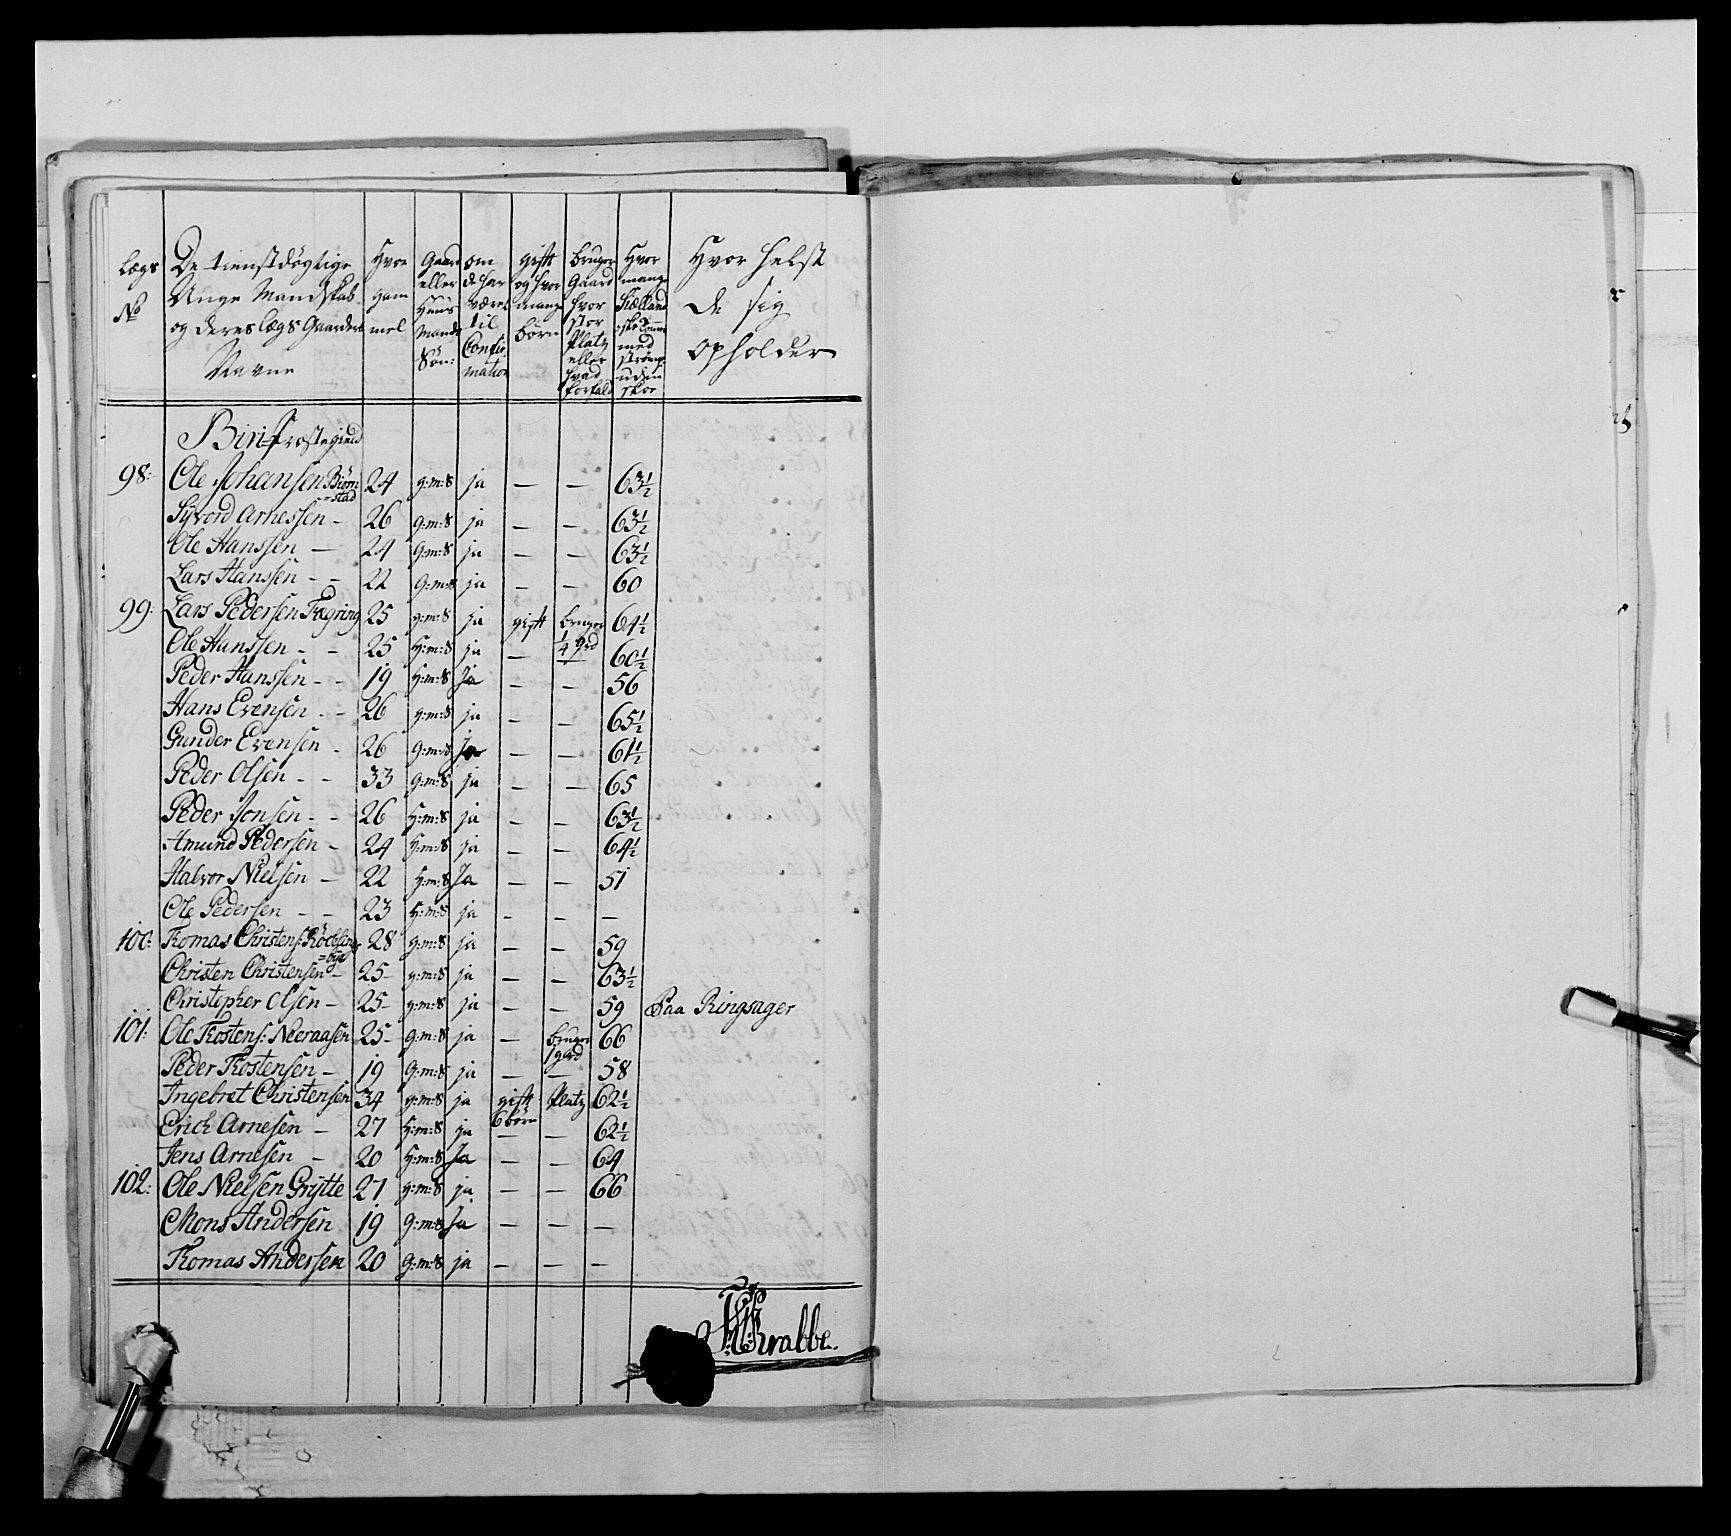 Lægs No | De tienstdygtige Unge Mandskab og deres Lægs Gaarders Navne | Hvor gammel | Gaard eller Huusmands Søn: | om de har været til Confirmation | gift og hvor mange børn | bruger Gaard hvor stor Platz eller hvad forfald | Hvor mange Siællandske Tomme med strømper uden skor | Hvor helst de sig opholder
Biri Præstegield
98: Ole Johansen Biørnstad 24 g:m:S ja — — 63½
Syvord Arnessen - 26 g:m:S ja — — 63½
Ole Hanssen — 24 g:m:S ja — — 63½
Lars Hanssen - - 22 g:m:S ja - - 60
99: Lars Pedersen Fægring 25 g:m:S ja gift bruger ¼ grd 64½
Ole Hanssen - - 25 H:m:S ja — — 60½
Peder Hanssen - - 19 H:m:S Ja — — 56
Hans Evensen - - 26 g:m:S ja — — 65½
Gunder Evensen - 26 g:m:S Ja — — 61½
Peder Olsen - - 33 g:m:S ja — — 65
Peder Jonsen - - 26 H:m:S ja — — 63½
Amund Pedersen - 24 H:m:S ja — — 64½
Halvor Nielsen - 22 H:m:S Ja — — 51
Ole Pedersen - - 23 H:m:S ja - - —
100: Tomas Christens: 28 g:m:S ja - - 59
Christen Christensen - 25 g:m:S ja — — 63½
Christopher Olsen - 25 g:m:S ja — — 59 Paa Ringsager
101: Ole Tostens: Neeraasen 25 g:m:S ja — bruger 1 gard 66
Peder Tostensen - 19 g:m:S ja — — 58
Ingebret Christensen 34 g:m:S ja gift 6 børn Platz 62½
Erich Arnesen - 27 H:m:S ja — — 62½
Jens Arnesen - 20 H:m:S Ja — — 64
102: Ole Nielsen Grytte 27 g:m:S ja — — 66
Mons Andersen 19 g:m:S Ja — — —
Tomas Andersen 20 g:m:S ja — — —
Krabbe.